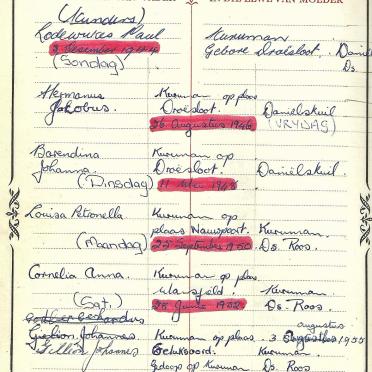 IN DIE EEUE VAN MOEDER
(Kinders)
Lodewikus Paul Kuruman
3 Desember 1944 Gebore Droësloot. Daniel
(Sondag) Ds.
Hermanus Kuruman op plaas
Jakobus. Droësloot. Daniëlskuil
26 Augustus 1946 (VRYDAG)
Barendina Kuruman op
Johanna. Droësloot. Daniëlskuil.
(Dinsdag) 11 Mei 1948
Louisa Petronella Kuruman op
plaas Nauwpoort. Kuruman.
(Maandag) 25 September 1950 Ds. Roos.
Cornelia Anna. Kuruman op plaas
Mansfeld. Kuruman.
(Sat.) 28 Junie 1952 Ds. Roos.
augustus
Gielion Johannes Kuruman op plaas 3 1955
Gillion Johannes Geluksoord. Kuruman.
Gedoop op Kuruman Ds. Roos